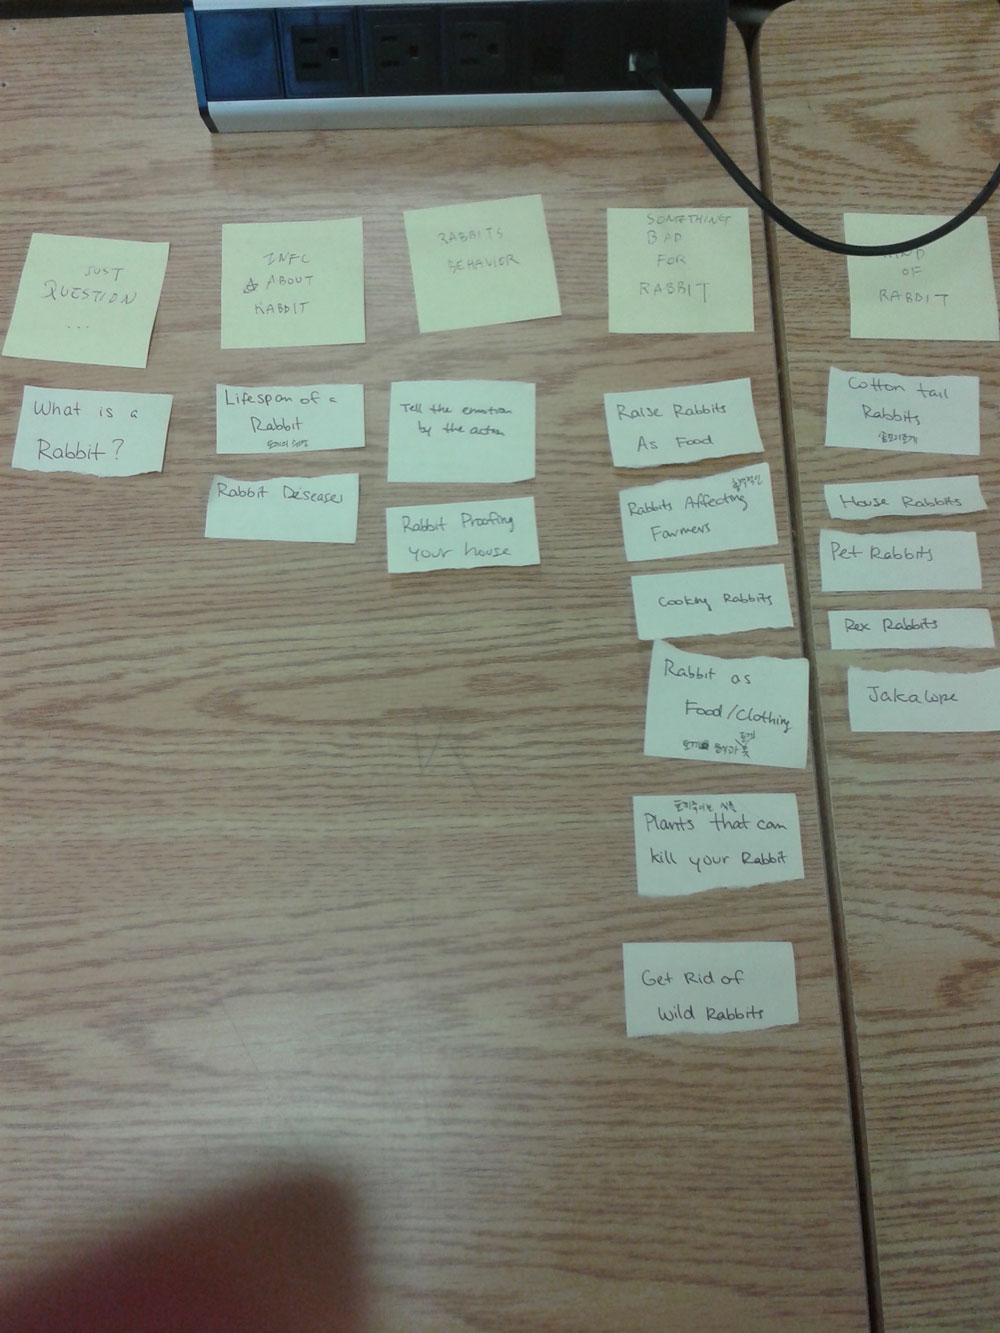 JUST
QUESTION
...
What is a
Rabbit?
INFO
ABOUT
RABBIT
Lifespan of a
Rabbit
Rabbit Diseases
RABBITS
BEHAVIOR
Tell the emotion
by the action
Rabbit Proofing
your house
SOMETHING
BAD
FOR
RABBIT
Raise Rabbits
As Food
Rabbits Affecting
Farmers
Cooking Rabbits
Rabbit as
Food/Clothing
토끼죽이는 식물
Plants that can
kill your Rabbit
Get Rid of
Wild Rabbits
OF
RABBIT
Cotton tail
Rabbits
House Rabbits
Pet Rabbits
Rex Rabbits
Jakalope